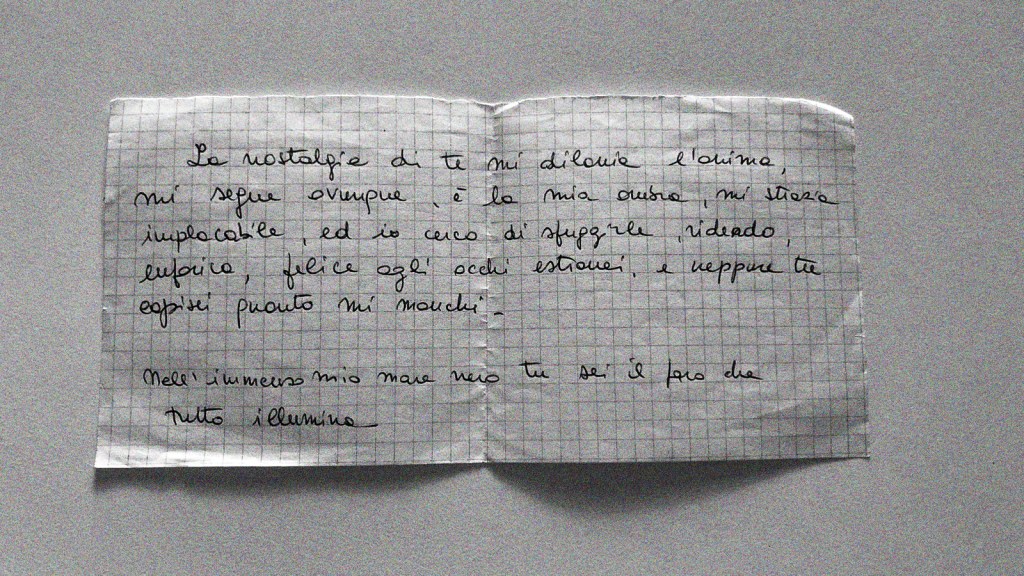 La nostalgia di te mi dilania l'anima,
mi segue ovunque, è la mia ombra, mi strazia
implacabile, ed io cerco di sfuggirle, ridendo,
euforica, felice agli occhi estranei, e neppure tu
capisci quanto mi manchi.
Nell'immenso mio mare nero tu sei il faro che
tutto illumina